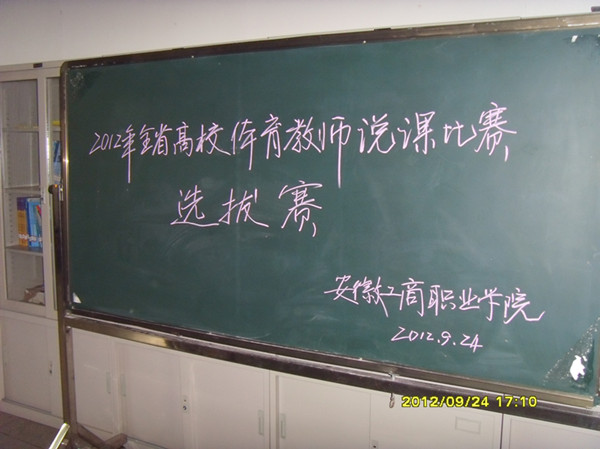 2012年全省高校体育教师说课比赛
选拔赛
安徽工商职业学院
2012.9.24
2012/09/24 17:10